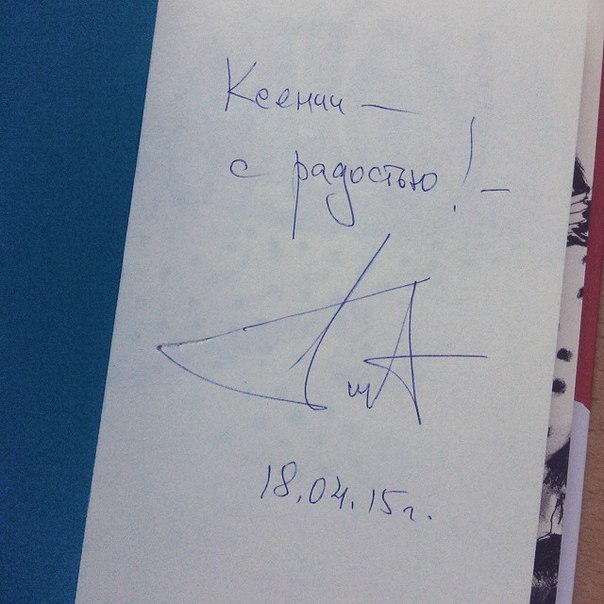 Ксении —
с радостью! –
18.04.15г.